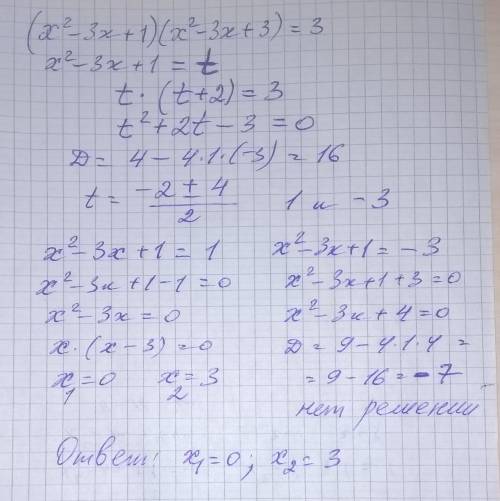 (x² - 3x + 1)(x² - 3x + 3) = 3
x² - 3x + 1 = t
t · (t + 2) = 3
t² + 2t - 3 = 0
D = 4 - 4·1·(-3) = 16
t = (-2 ± 4)/2    1 и -3
x² - 3x + 1 = 1
x² - 3x + 1 - 1 = 0
x² - 3x = 0
x · (x - 3) = 0
x₁ = 0    x₂ = 3
x² - 3x + 1 = -3
x² - 3x + 1 + 3 = 0
x² - 3x + 4 = 0
D = 9 - 4·1·4 =
= 9 - 16 = -7
нет решении
Ответ: x₁ = 0; x₂ = 3